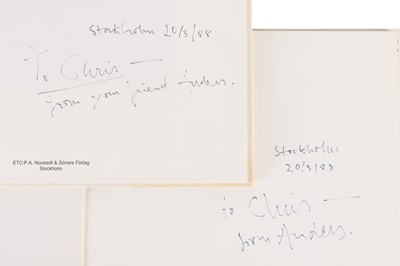 Stockholm 20/3/88
To Chris —
from your friend Anders.
ETC/P.A. Norstedt & Söners Förlag
Stockholm
Stockholm
20/3/89
to Chris —
from Anders.